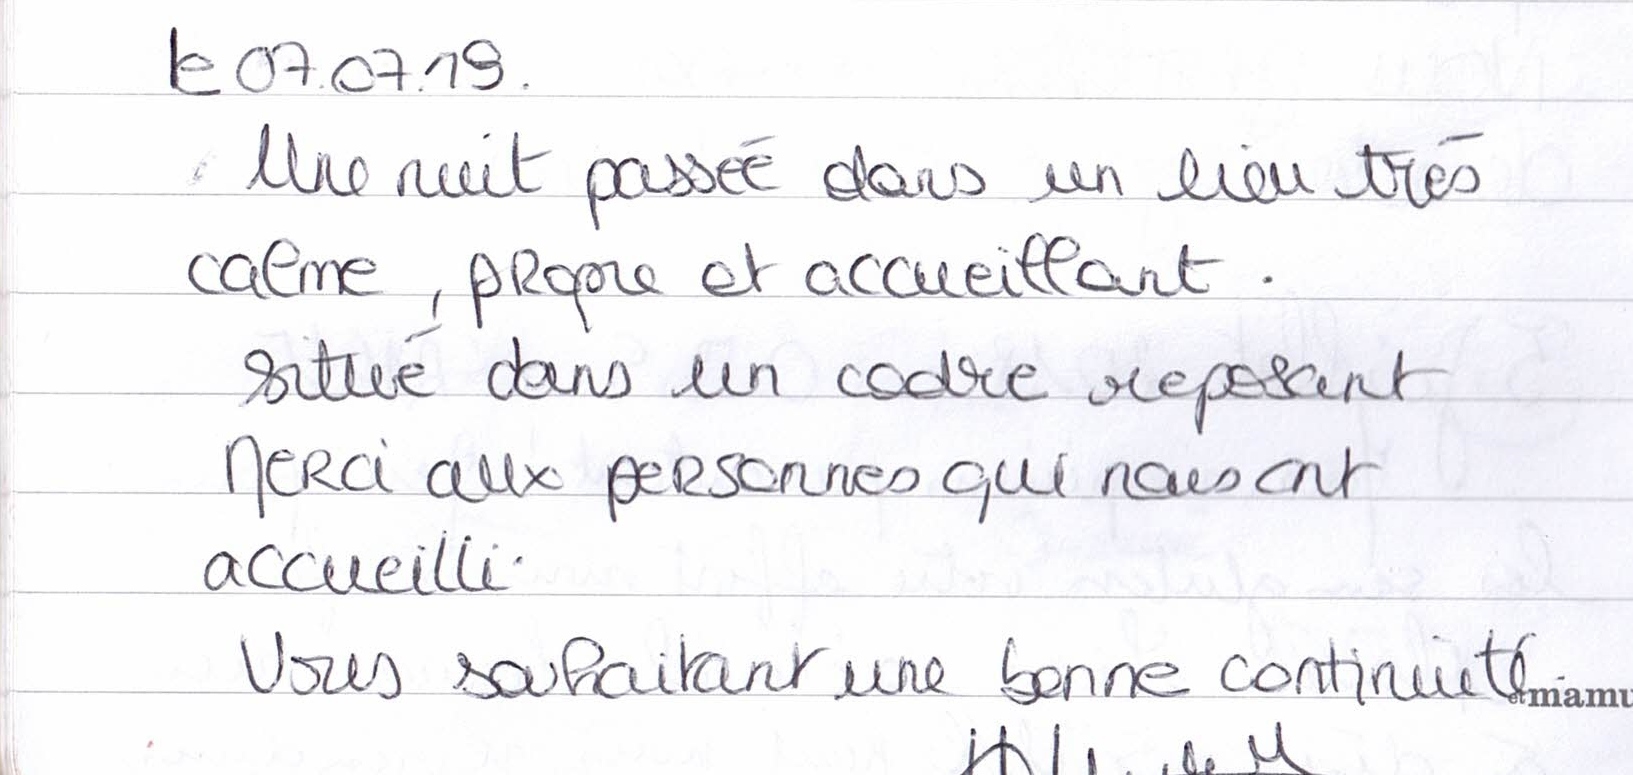 le 07.07.19.
Une nuit passée dans un lieu très
calme, propre et accueillant.
situé dans un cadre reposant
Merci aux personnes qui nous ont
accueilli.
Vous souhaitant une bonne continuité
mamu